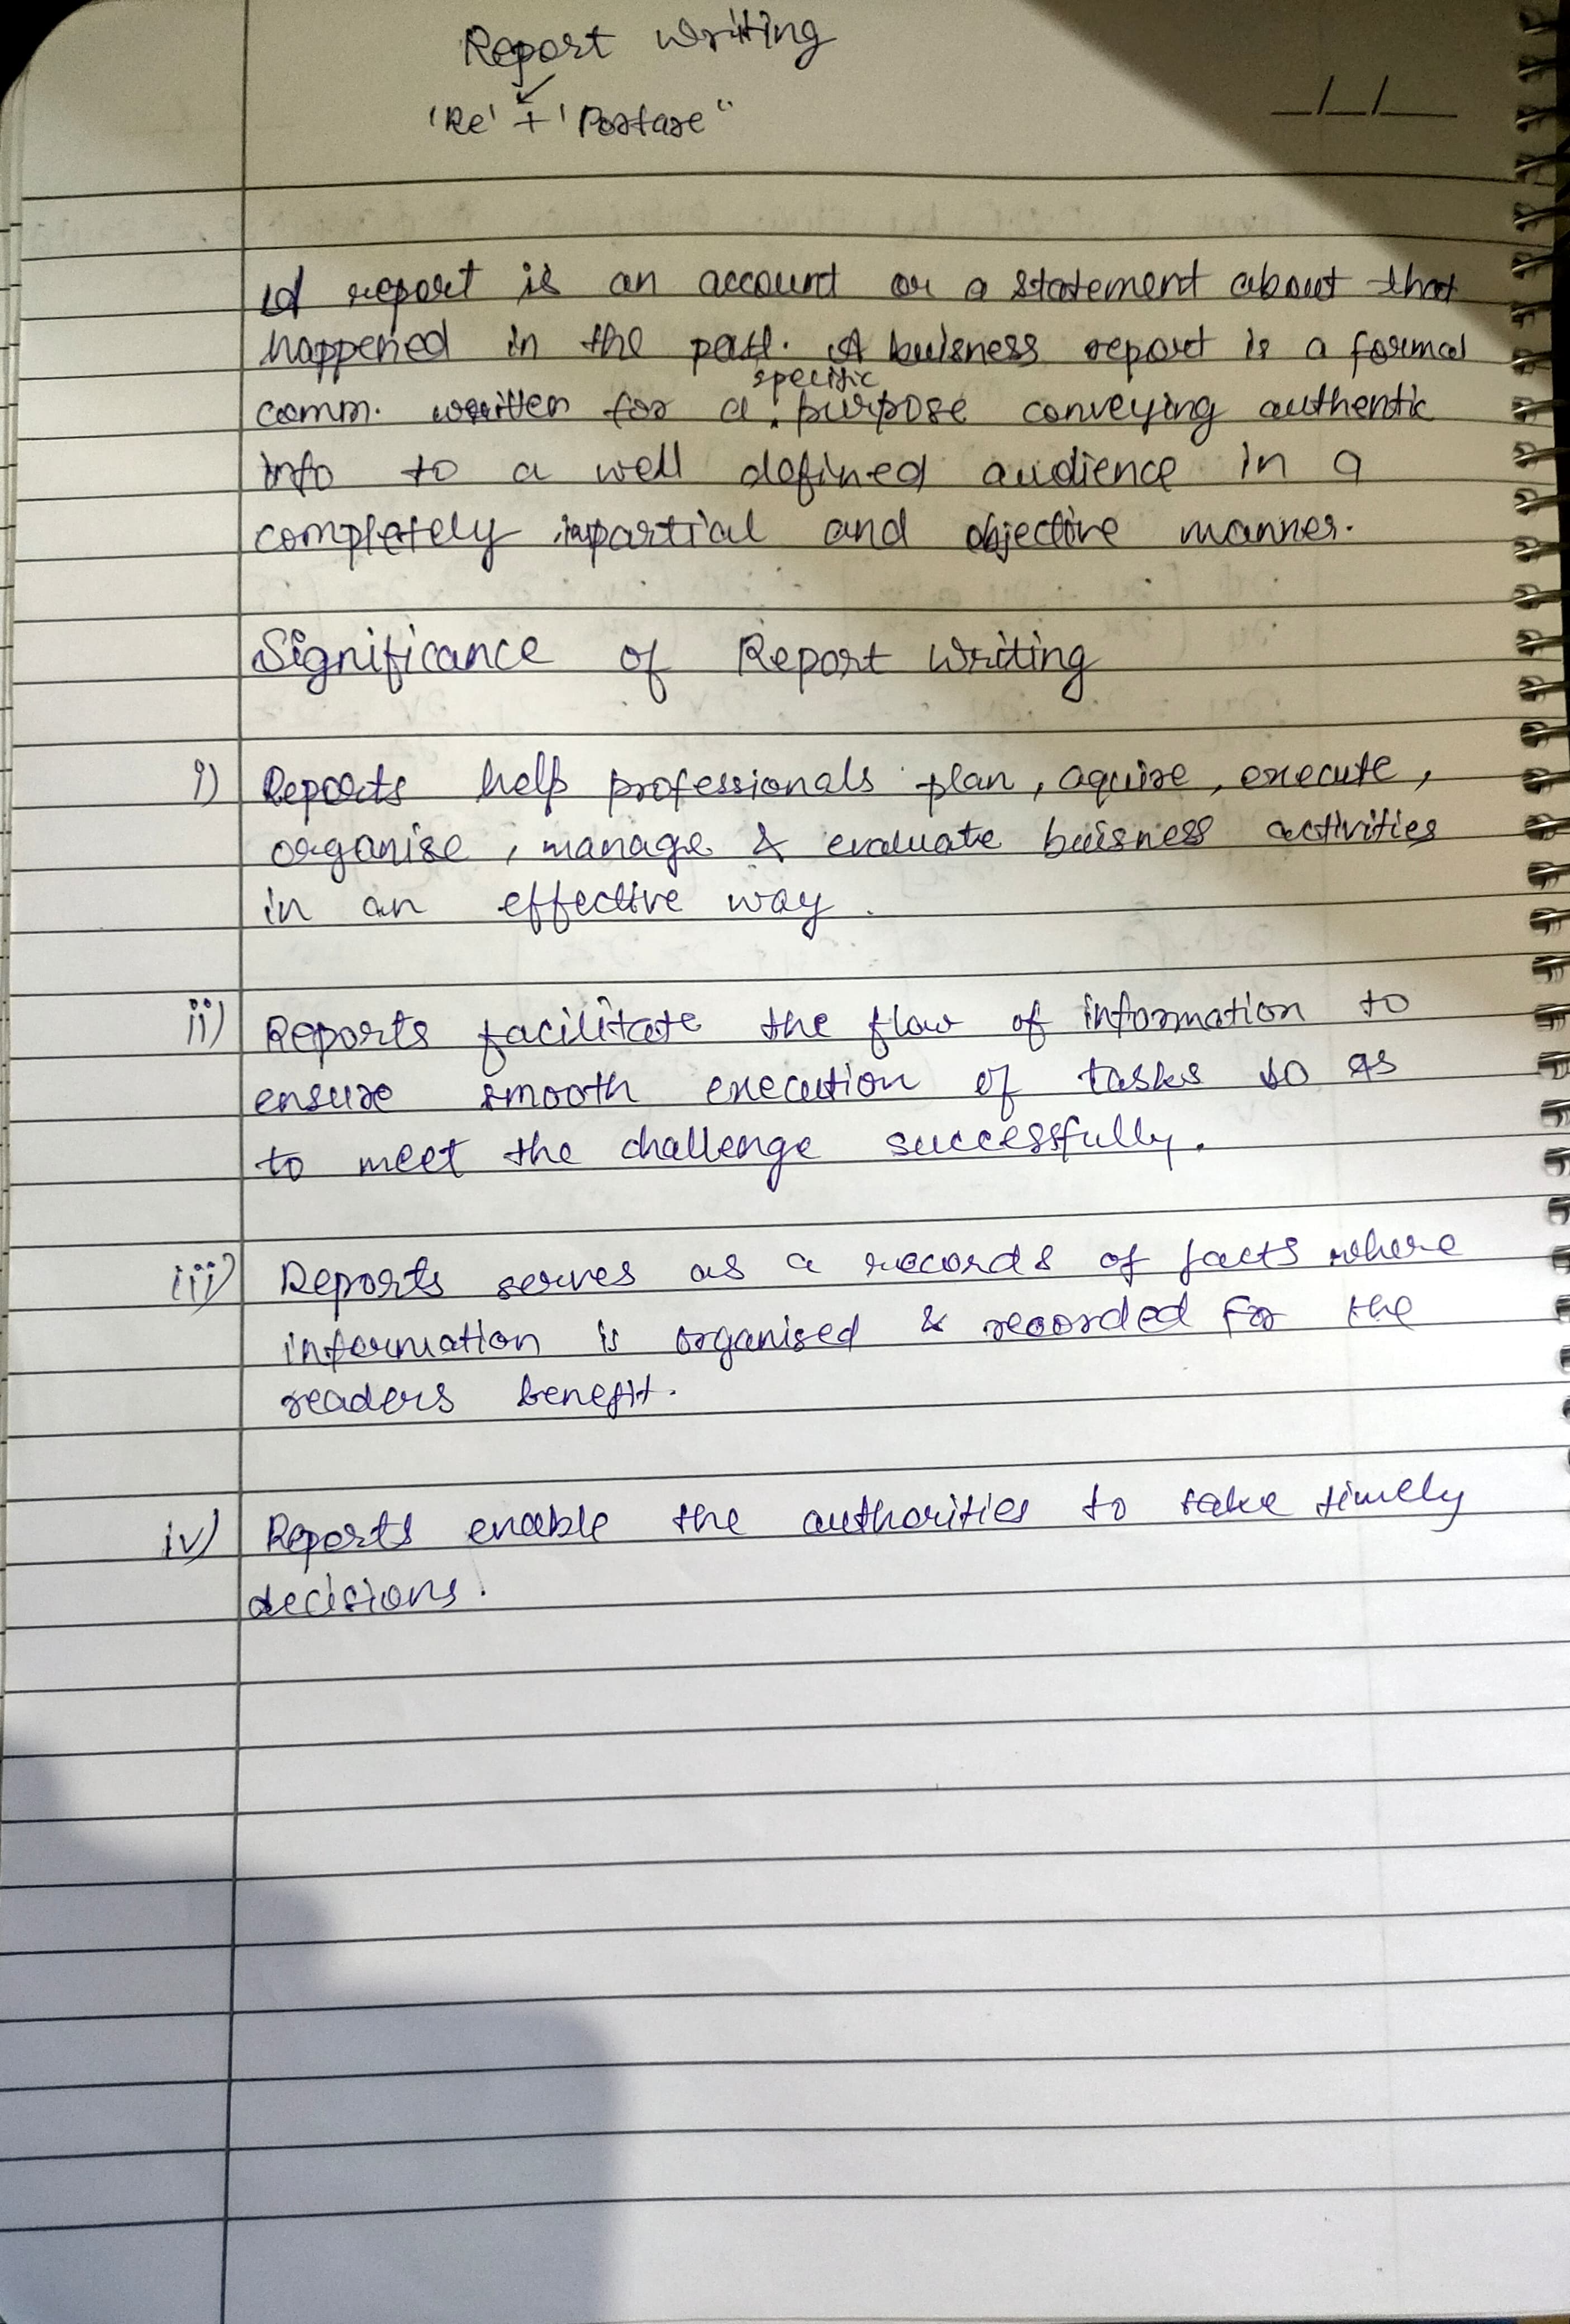 Report Writing
'Re' + 'Portare"
A report is an account or a statement about that
happened in the past. A buisness report is a formal
specific
comm. written for a purpose conveying authentic
info to a well defined audience in a
completely impartial and objective manner.
Significance of Report Writing
i) Reports help professionals plan, aquire, execute,
organise, manage & evaluate buisness activities
in an effective way.
ii) Reports facilitate the flow of information to
ensure smooth execution of tasks so as
to meet the challenge successfully.
iii) Reports serves as a records of facts where
information is organised & recorded for the
readers benefit.
iv) Reports enable the authorities to take timely
decisions.